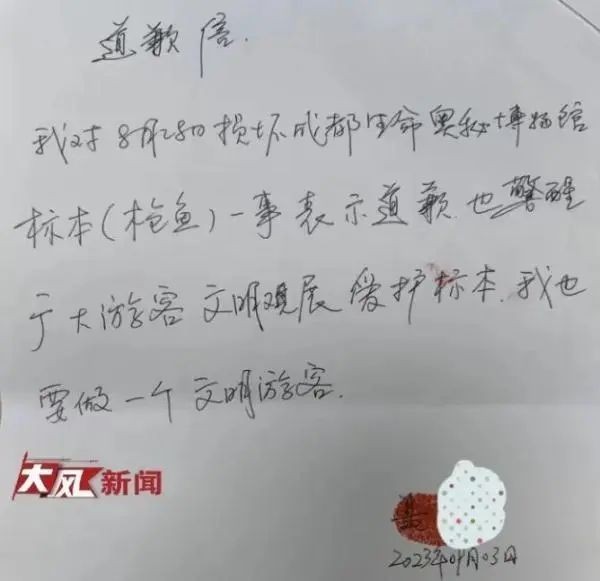 道歉信.
我对8月28日损坏成都生命奥秘博物馆
标本(枪鱼)一事表示道歉.也警醒
广大游客文明观展爱护标本.我也
要做一个文明游客.
大风新闻
2023年09月03日